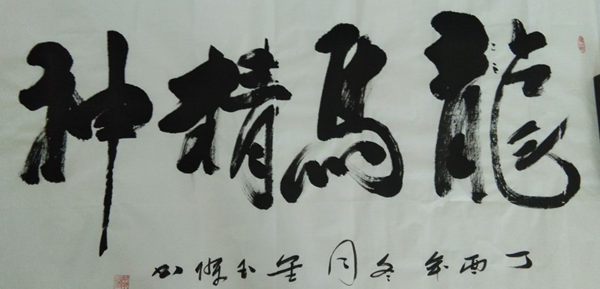 龍馬精神
丁酉年冬月